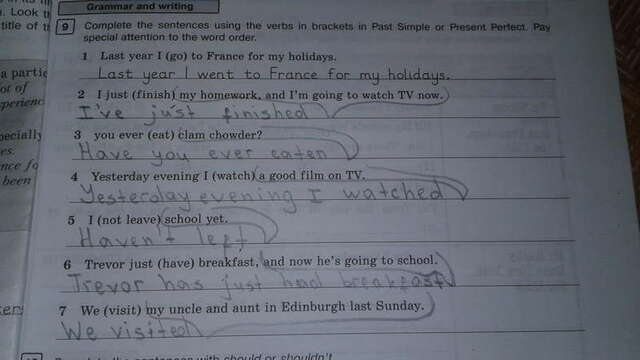 Grammar and writing
. Look
title of t
9 Complete the sentences using the verbs in brackets in Past Simple or Present Perfect. Pay
special attention to the word order.
1 Last year I (go) to France for my holidays.
Last year I went to France for my holidays.
a partic
2 I just (finish) my homework, and I'm going to watch TV now.
I've just finished
3 you ever (eat) clam chowder?
Have you ever eaten
4 Yesterday evening I (watch) a good film on TV.
Yesterday evening I watched
been
5 I (not leave) school yet.
Haven't left
6 Trevor just (have) breakfast, and now he's going to school.
Trevor has just had breakfast
7 We (visit) my uncle and aunt in Edinburgh last Sunday.
We visited
the sentences with should or shouldn't